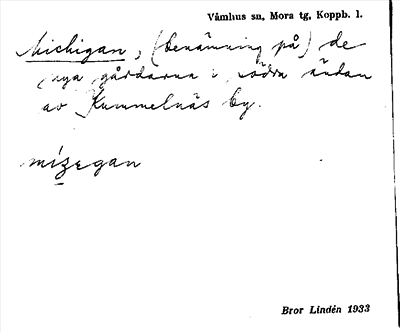 Våmhus sn, Mora tg, Koppb. l.
Michigan, (benämning på) de
nya gårdarna i södra ändan
av Kummelnäs by.
mízegan
Bror Lindén 1933